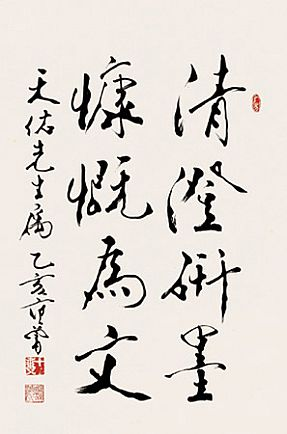 清澄研墨
慷慨為文
天佑先生属 乙亥 范曾